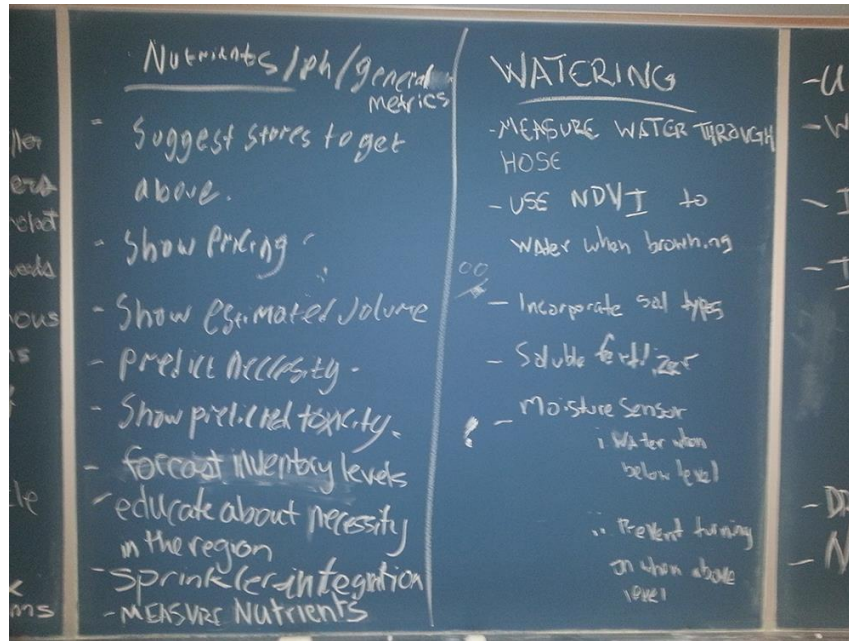 Nutrients/ph/general
metrics
- Suggest stores to get
above.
- Show Pricing
- Show estimated volume
- predict necessity.
- Show predicted toxicity.
- forcast inventory levels
- educate about necessity
in the region
- sprinkler integration
- MEASURE Nutrients
WATERING
- MEASURE WATER THROUGH
HOSE
- USE NDVI to
water when browning
- Incorporate soil types
- Soluble fertilizer
- Moisture Sensor
i water when
below level
ii Prevent turning
on when above
level